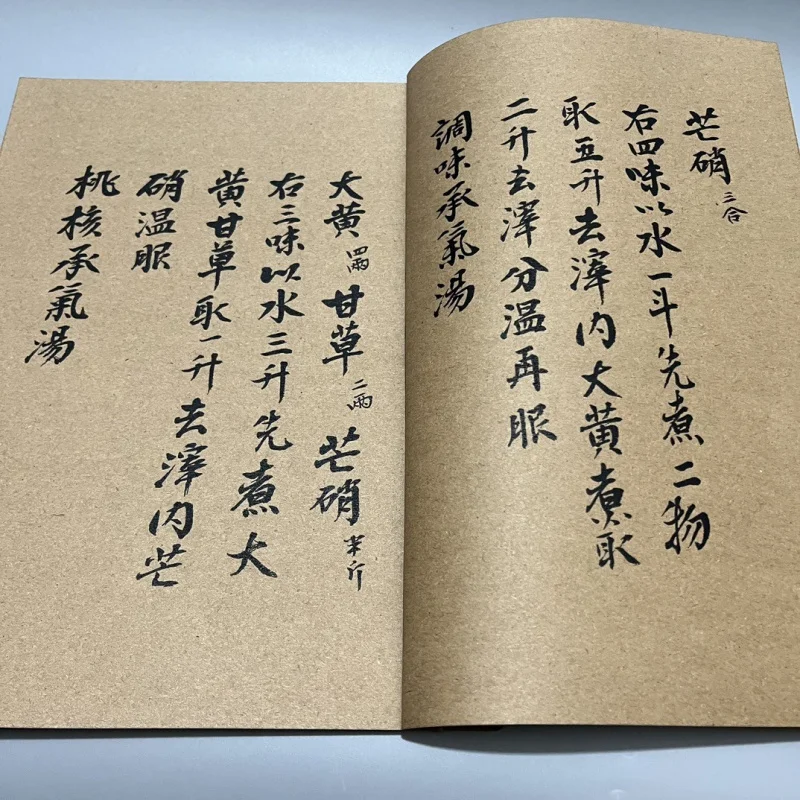 芒硝三合
右四味以水一斗先煮二物
取五升去滓内大黄煮取
二升去滓分温再眼
調味承氣湯
大黄四兩甘草二兩芒硝半斤
右三味以水三升先煮大
黄甘草取一升去滓内芒
硝温眼
桃核承氣湯